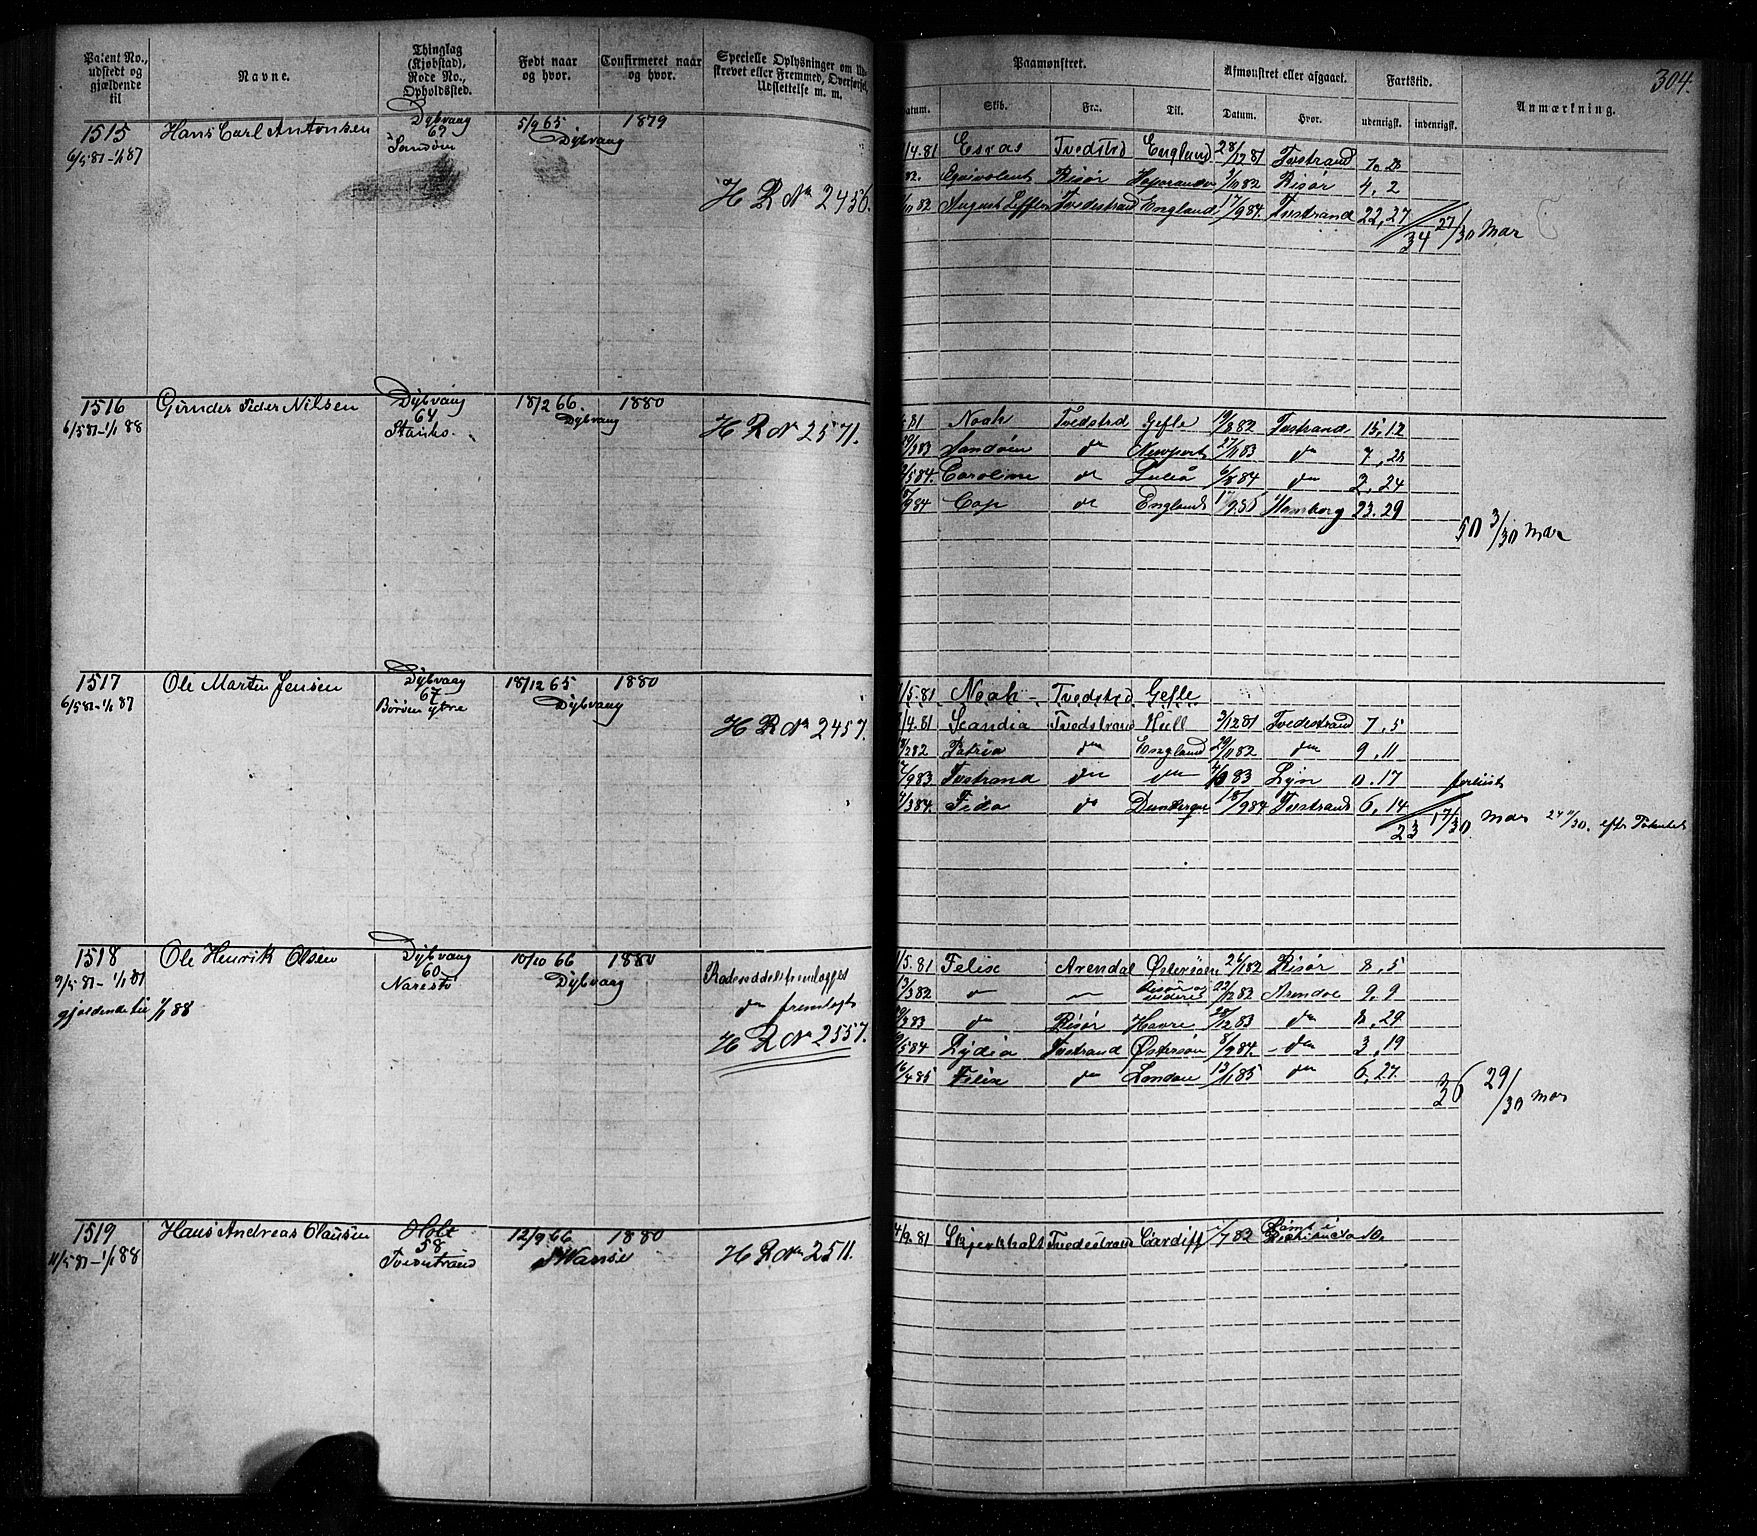 304.
Patent No., udstedt og gjældende til
Navne.
Thinglag (Kjøbstad), Rode No., Opholdssted.
Født naar og hvor.
Confirmeret naar og hvor.
Specielle Oplysninger om Ud-
skrevet eller Fremmed, Overførsel,
Udslettelse m. m.
Paamønstret.
Afmønstret eller afgaaet.
Fartstid.
Anmærkning.
Datum. Skib. Fra. Til. Datum. Hvor. udenrigsk. indenrigsk.
1515 Hans Carl Antonsen Dybvaag 5/9 65 1879
6/5 81-1/1 87 Dybvaag
H R No 2456.
/4.81 Tvedstrd England 28/12 81 Tvstrand
82. Eqvivolent Risør 3/10 82 Risør 4, 2
/10 82 August Leffler Tvedestrand England 17/9 84. Tvstrand 22, 27
34 27/30 Mar
1516 Gunder Peder Nilsen Dybvaag 18/2 66 1880
6/5 81-1/1 88 64 Dybvaag
H R No 2571.
81 Noah Tvedstrd Gefle 19/8 82 Tvstrand 15, 12
/3 83 Sandøen do Newport 27/11 83 do 7, 28
/5 84. Caroline do Luleå 6/8 84 do 2, 24
/9 84 Cap do England Hamborg 23. 29
50 3/30 Mar
1517 Ole Marten Jensen Dybvaag 18/12 65 1880
6/5 81-1/1 87 67 Dybvaag
Børøen ytre
H R No 2457.
/5.81 Noah Tvedstrd Gefle
/4.81 Scandia Tvedstrand Hull 3/12 81 Tvedestrand 7, 5
/2 82 Patria do England 29/11 82 do 9, 11
/9 83 Tvstrand do do 83 0. 17 forliist
/3 84. do 18/9 84 Tvstrand 6, 14
23 17/30 Mar efter Patentet
1518 Ole Henrik Olsen Dybvaag 10/10 66 1880
9/5 81-1/1 87 60 Dybvaag
Narestø
gjældende til 1/1 88
do fremlagt
H R No 2557.
/5.81 Felix Arendal Østersøen 26/1 82 Risør 8, 5
13/3 82 Risør og videre 22/12 82 Arendal 9, 9
/3 83 do Risør Havre 28/12 83 do 8, 29
/5 84 Lydia Tvstrand Østersøen 8/9 84. do 3, 19
16/4 85 Felix do London 13/11 85 do 6, 27.
36 29/30 Mar
1519 Hans Andreas Olausen Holt 12/9 66 1880
11/5 81-1/1 88 58
Tvedestrand
H R No 2511.
4/9. 81 Skjervhalt Tvedestrand Cardiff /7 82 10.